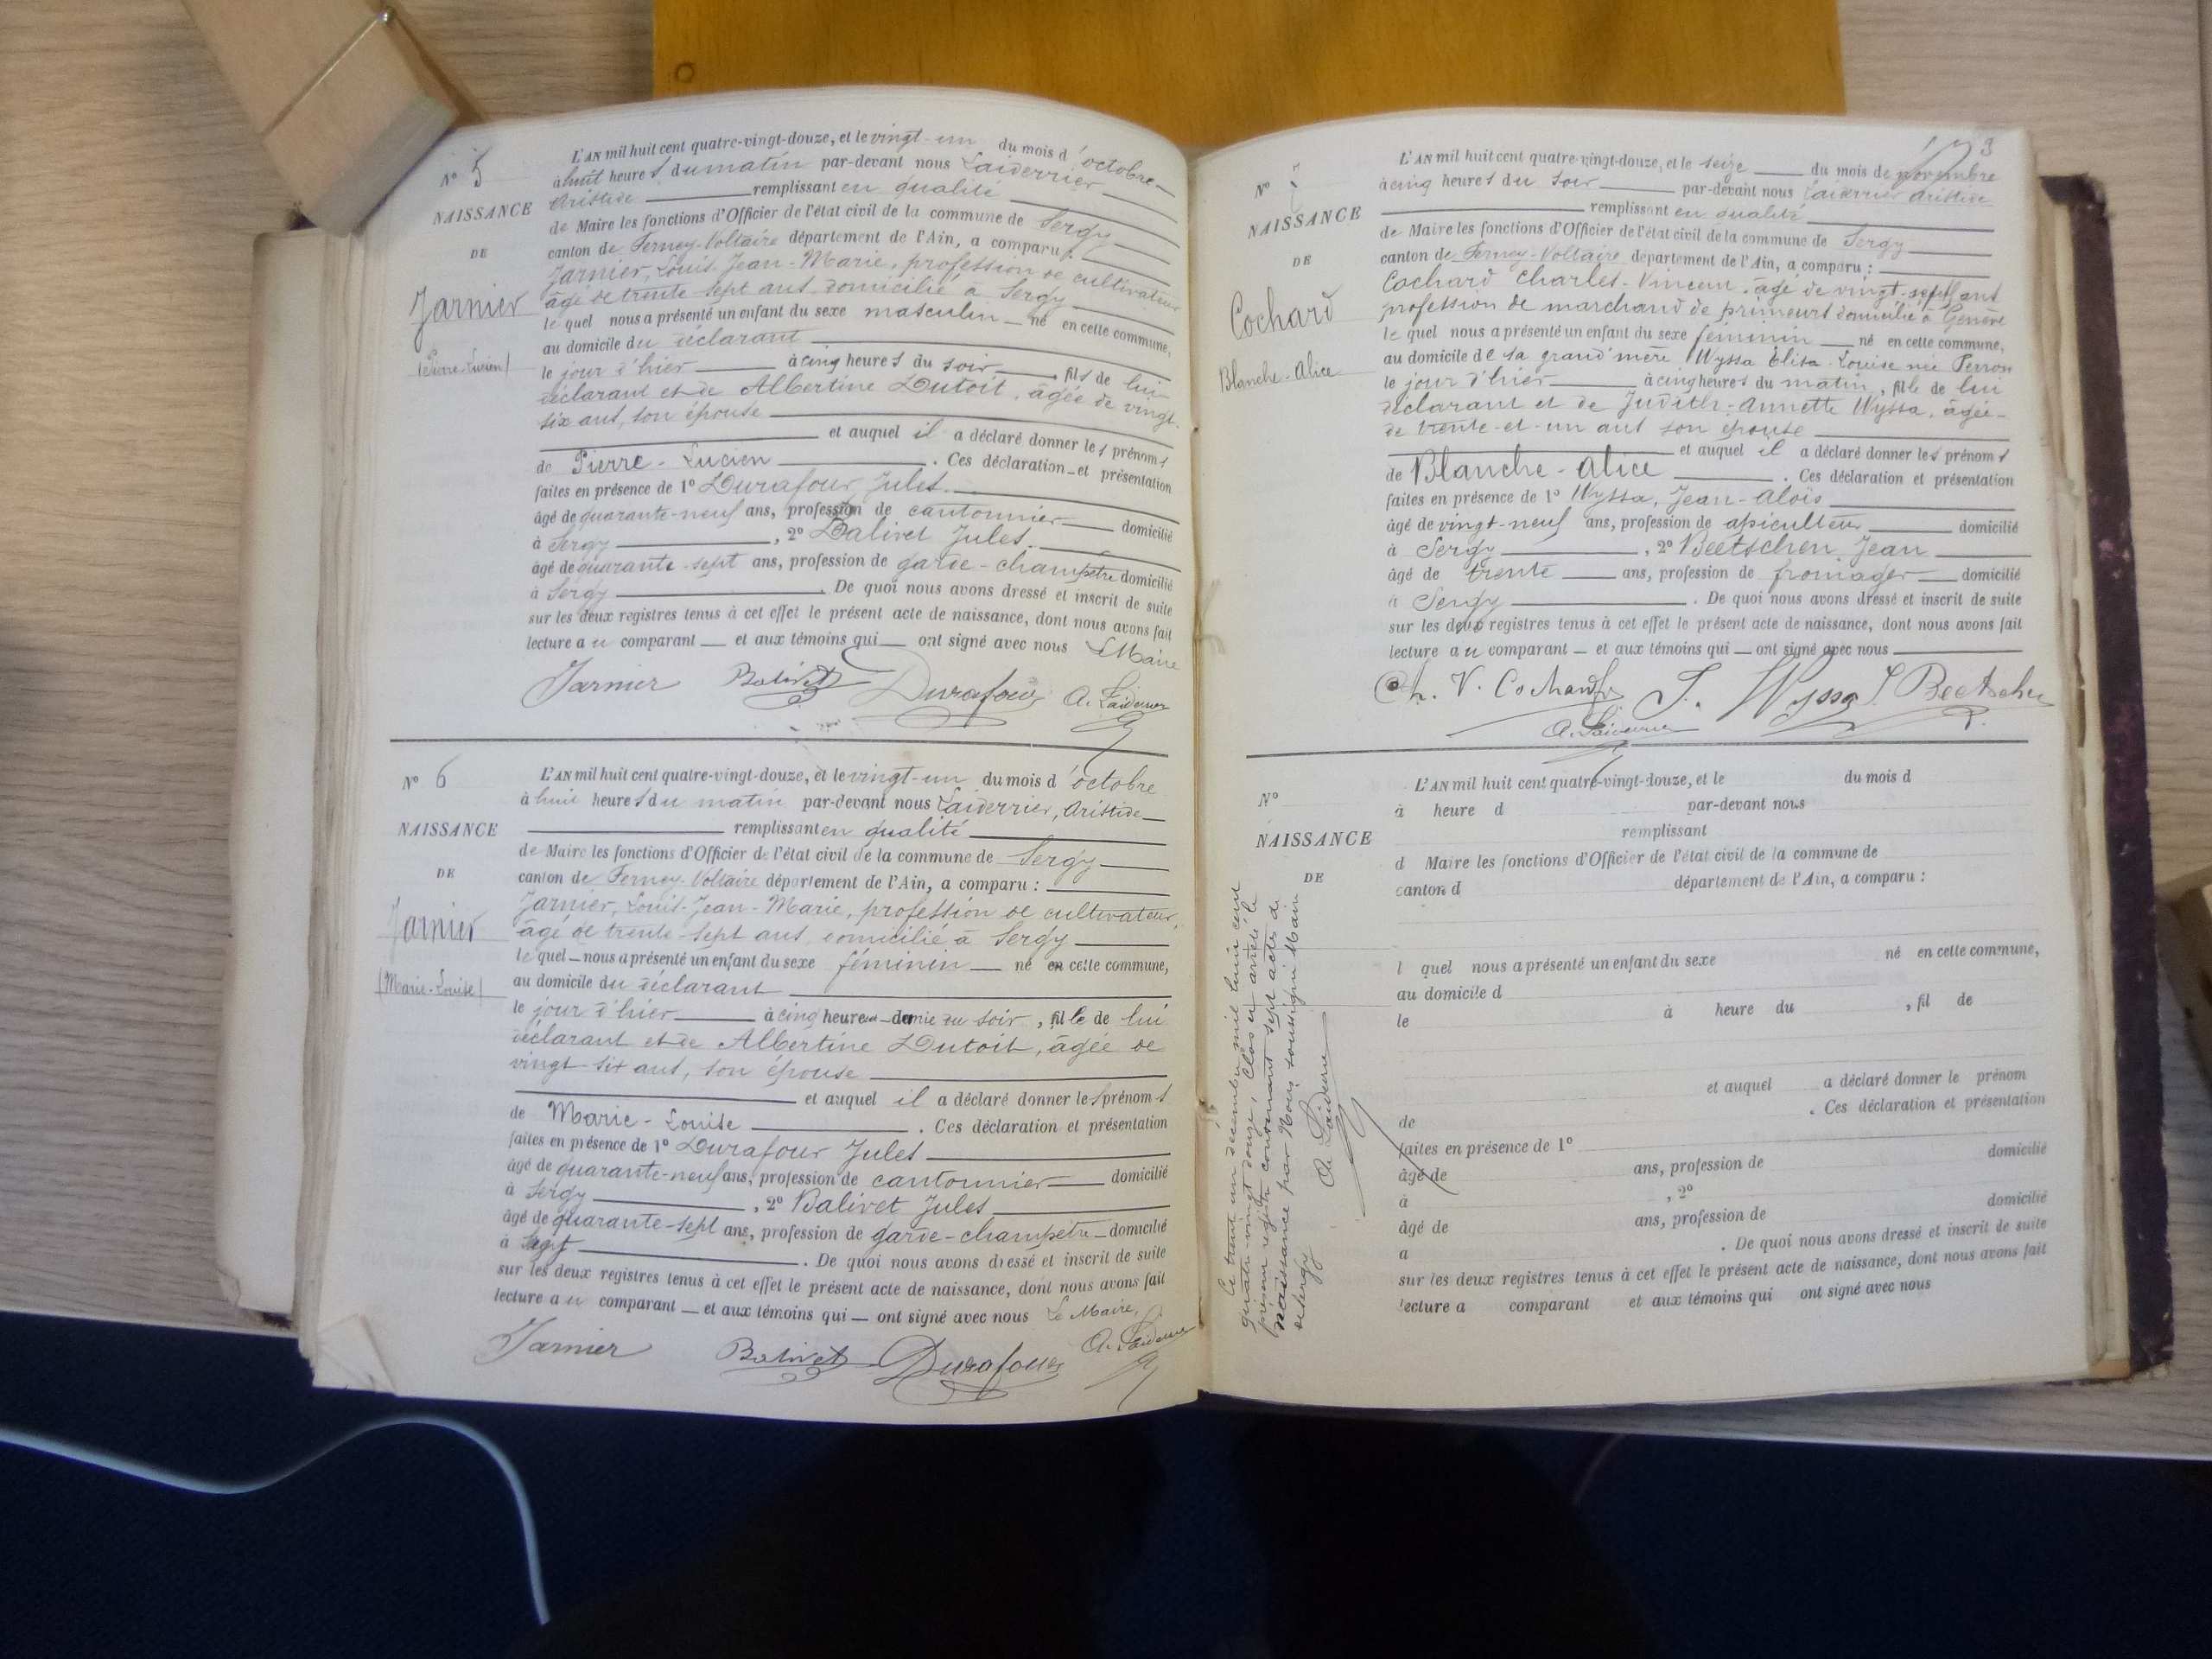 N° 5
NAISSANCE
DE
Jarnier
(Pierre-Lucien)
L'AN mil huit cent quatre-vingt-douze, et le vingt-un du mois d'octobre
à huit heures du matin par-devant nous Laiderrier
Aristide remplissant en qualité
de Maire les fonctions d'Officier de l'état civil de la commune de Sergy
canton de Ferney-Voltaire département de l'Ain, a comparu :
Jarnier, Louis-Jean-Marie, profession de cultivateur
âgé de trente-sept ans, domicilié à Sergy
le quel nous a présenté un enfant du sexe masculin né en cette commune,
au domicile du déclarant
le jour d'hier à cinq heures du soir, fils de lui
déclarant et de Albertine Dutoit, âgée de vingt-
six ans, son épouse
et auquel il a déclaré donner les prénoms
de Pierre-Lucien. Ces déclaration et présentation
faites en présence de 1° Durafour Jules
âgé de quarante-neuf ans, profession de cantonnier domicilié
à Sergy, 2° Balivet Jules
âgé de quarante-sept ans, profession de garde-champêtre domicilié
à Sergy. De quoi nous avons dressé et inscrit de suite
sur les deux registres tenus à cet effet le présent acte de naissance, dont nous avons fait
lecture au comparant et aux témoins qui ont signé avec nous Le Maire
Jarnier Balivet Durafour A. Laiderrier
N° 6
NAISSANCE
DE
Jarnier
(Marie-Louise)
L'AN mil huit cent quatre-vingt-douze, et le vingt-un du mois d'octobre
à huit heures du matin par-devant nous Laiderrier, Aristide
remplissant en qualité
de Maire les fonctions d'Officier de l'état civil de la commune de Sergy
canton de Ferney-Voltaire département de l'Ain, a comparu :
Jarnier, Louis-Jean-Marie, profession de cultivateur,
âgé de trente-sept ans, domicilié à Sergy
le quel nous a présenté un enfant du sexe féminin né en cette commune,
au domicile du déclarant
le jour d'hier à cinq heures et demie du soir, fille de lui
déclarant et de Albertine Dutoit, âgée de
vingt-six ans, son épouse
et auquel il a déclaré donner les prénoms
de Marie-Louise. Ces déclaration et présentation
faites en présence de 1° Durafour Jules
âgé de quarante-neuf ans, profession de cantonnier domicilié
à Sergy, 2° Balivet Jules
âgé de quarante-sept ans, profession de garde-champêtre domicilié
à Sergy. De quoi nous avons dressé et inscrit de suite
sur les deux registres tenus à cet effet le présent acte de naissance, dont nous avons fait
lecture au comparant et aux témoins qui ont signé avec nous Le Maire,
Jarnier Balivet Durafour A. Laiderrier
N° 7
NAISSANCE
DE
Cochard
Blanche-Alice
L'AN mil huit cent quatre-vingt-douze, et le seize du mois de novembre
à cinq heures du soir par-devant nous Laiderrier Aristide
remplissant en qualité
de Maire les fonctions d'Officier de l'état civil de la commune de Sergy
canton de Ferney-Voltaire département de l'Ain, a comparu :
Cochard Charles-Vincent, âgé de vingt-sept ans
profession de marchand de primeurs domicilié à Genève
le quel nous a présenté un enfant du sexe féminin né en cette commune,
au domicile de sa grand'mère Wyssa Elisa-Louise née Perron
le jour d'hier à cinq heures du matin, fille de lui
déclarant et de Judith-Annette Wyssa, âgée
de trente-et-un ans son épouse
et auquel il a déclaré donner les prénoms
de Blanche-Alice. Ces déclaration et présentation
faites en présence de 1° Wyssa, Jean-Aloïs
âgé de vingt-neuf ans, profession de apiculteur domicilié
à Sergy, 2° Beetschen Jean
âgé de trente ans, profession de fromager domicilié
à Sergy. De quoi nous avons dressé et inscrit de suite
sur les deux registres tenus à cet effet le présent acte de naissance, dont nous avons fait
lecture au comparant et aux témoins qui ont signé avec nous
Ch. V. Cochard J. Wyssa J. Beetschen
A. Laiderrier
N°
NAISSANCE
DE
Ce trente un décembre mil huit cent
quatre-vingt douze, Clos et arrêté le
présent registre contenant sept actes de
naissance par Nous soussigné Maire
de Sergy
A. Laiderrier
L'AN mil huit cent quatre-vingt-douze, et le du mois d
à heure d par-devant nous
remplissant
d Maire les fonctions d'Officier de l'état civil de la commune de
canton d département de l'Ain, a comparu :
l quel nous a présenté un enfant du sexe né en cette commune,
au domicile d
le à heure du , fil de
et auquel a déclaré donner le prénom
de . Ces déclaration et présentation
faites en présence de 1°
âgé de ans, profession de domicilié
à , 2°
âgé de ans, profession de domicilié
a . De quoi nous avons dressé et inscrit de suite
sur les deux registres tenus à cet effet le présent acte de naissance, dont nous avons fait
lecture a comparant et aux témoins qui ont signé avec nous